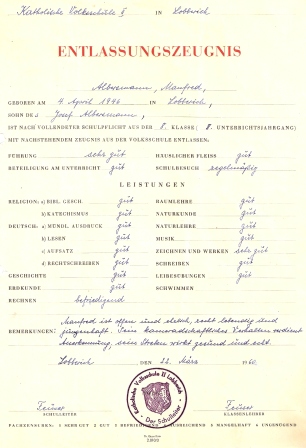 Katholische Volksschule II IN Lobberich
ENTLASSUNGSZEUGNIS
Albersmann, Manfred,
GEBOREN AM 4. April 1946 IN Lobberich,
SOHN DES Josef Albersmann,
IST NACH VOLLENDETER SCHULPFLICHT AUS DER 8. KLASSE ( 8. UNTERRICHTSJAHRGANG)
MIT NACHSTEHENDEM ZEUGNIS AUS DER VOLKSSCHULE ENTLASSEN.
FÜHRUNG sehr gut HÄUSLICHER FLEISS gut
BETEILIGUNG AM UNTERRICHT gut SCHULBESUCH regelmäßig
LEISTUNGEN
RELIGION: a) BIBL. GESCH. gut RAUMLEHRE gut
b) KATECHISMUS gut NATURKUNDE gut
DEUTSCH: a) MÜNDL. AUSDRUCK gut NATURLEHRE gut
b) LESEN gut MUSIK gut
c) AUFSATZ gut ZEICHNEN UND WERKEN sehr gut
d) RECHTSCHREIBEN gut SCHREIBEN gut
GESCHICHTE gut LEIBESÜBUNGEN gut
ERDKUNDE gut SCHWIMMEN
RECHNEN befriedigend
BEMERKUNGEN: Manfred ist offen und ehrlich, recht lebendig und
jungenhaft. Sein kameradschaftliches Verhalten verdient
Anerkennung, sein Streben wirkt gesund und echt.
Lobberich DEN 22. März 1960
Katholische Volksschule II Lobberich
Der Schulleiter
SCHULLEITER KLASSENLEHRER
FACHZENSUREN: 1 SEHR GUT 2 GUT 3 BEFRIEDIGEND 4 AUSREICHEND 5 MANGELHAFT 6 UNGENÜGEND